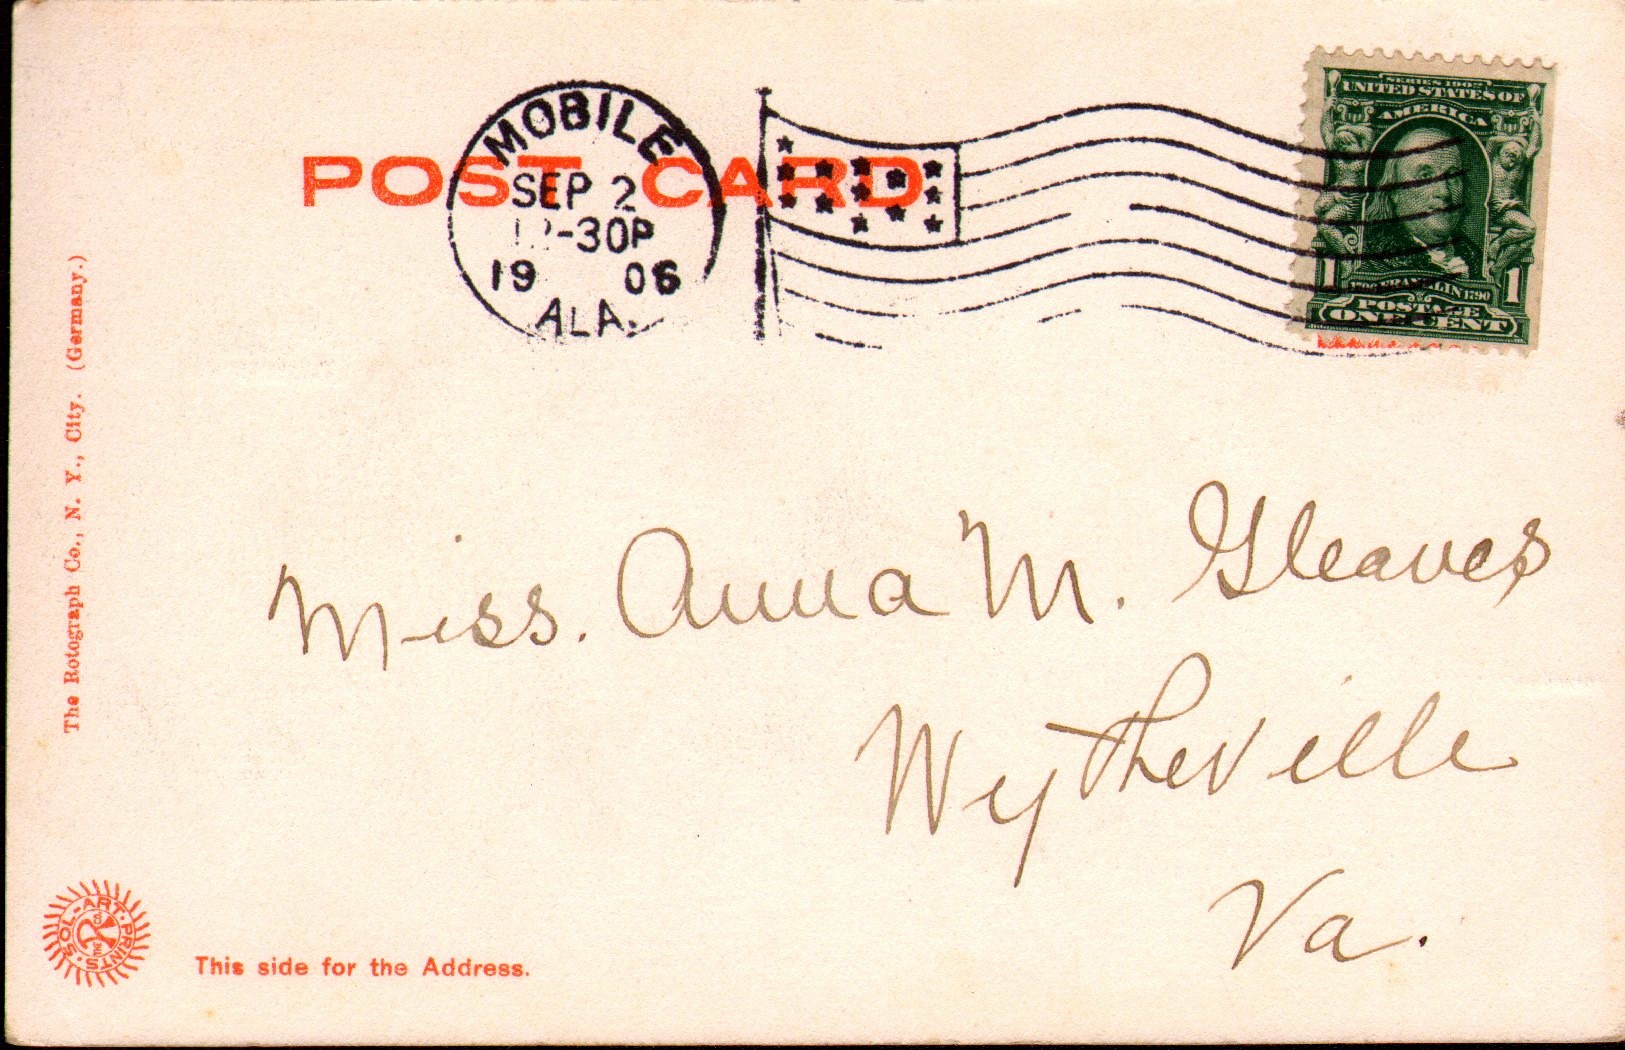 POST CARD
MOBILE
SEP 2
-30P
1906
ALA.
SERIES 1902
UNITED STATES OF
AMERICA
1 FRANKLIN 1790 1
POSTAGE
ONE CENT
The Rotograph Co., N. Y., City. (Germany.)
Miss. Anna M. Gleaves
Wytheville
Va.
SOL-ART-PRINTS
This side for the Address.